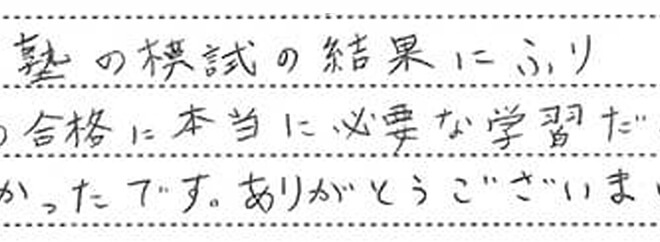 塾の模試の結果にふり
の合格に本当に必要な学習だ
かったです。ありがとうございま